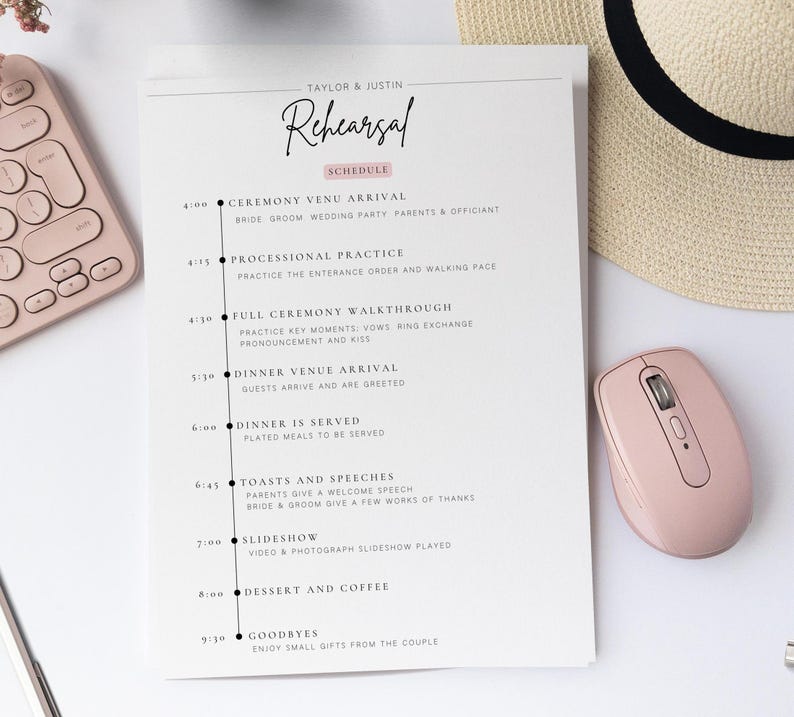 del
back
enter
shift
TAYLOR & JUSTIN
Rehearsal
SCHEDULE
4:00 CEREMONY VENU ARRIVAL
BRIDE GROOM WEDDING PARTY PARENTS & OFFICIANT
4:15 PROCESSIONAL PRACTICE
PRACTICE THE ENTERANCE ORDER AND WALKING PACE
4:30 FULL CEREMONY WALKTHROUGH
PRACTICE KEY MOMENTS; VOWS RING EXCHANGE
PRONOUNCEMENT AND KISS
5:30 DINNER VENUE ARRIVAL
GUESTS ARRIVE AND ARE GREETED
6:00 DINNER IS SERVED
PLATED MEALS TO BE SERVED
6:45 TOASTS AND SPEECHES
PARENTS GIVE A WELCOME SPEECH
BRIDE & GROOM GIVE A FEW WORKS OF THANKS
7:00 SLIDESHOW
VIDEO & PHOTOGRAPH SLIDESHOW PLAYED
8:00 DESSERT AND COFFEE
9:30 GOODBYES
ENJOY SMALL GIFTS FROM THE COUPLE